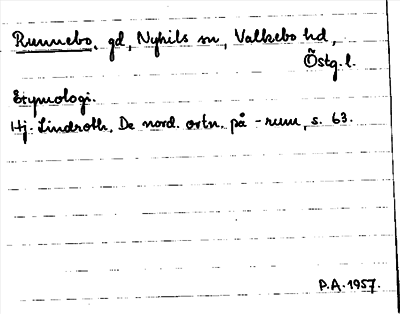 Runnebo, gd, Nykils sn, Valkebo hd,
Östg. l.
Etymologi.
Hj. Lindroth, De nord. ortn. på -rum, s. 63.
P.A. 1957.